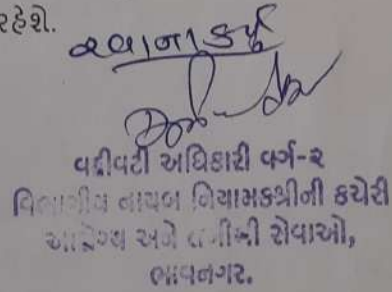 રહેશે.
રવાના કર્યું
વહીવટી અધિકારી વર્ગ-૨
વિભાગીય નાયબ નિયામકશ્રીની કચેરી
આરોગ્ય અને તબીબી સેવાઓ,
ભાવનગર.